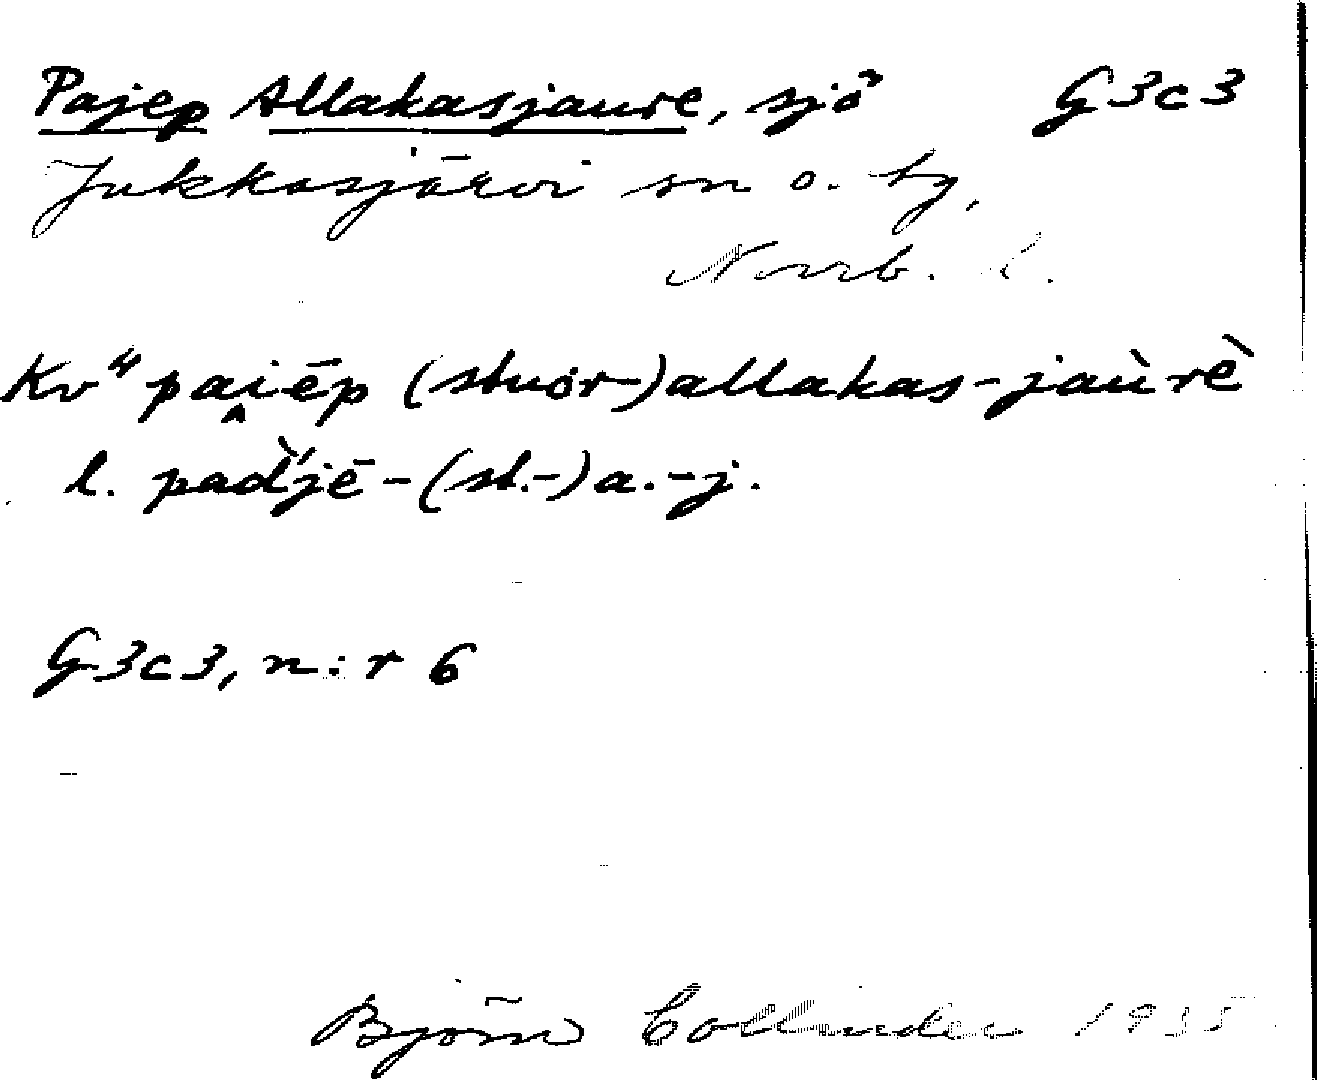 Pajep Allakasjaure, sjö G3c3
Jukkasjärvi sn o. tg,
Norrb. l.
Kv" pai̭ēp (stuor-)allakas-jaùrè
l. pad̀'jē-(st.-)a.-j.
G3c3, n:r 6
Björn Collinder 1935